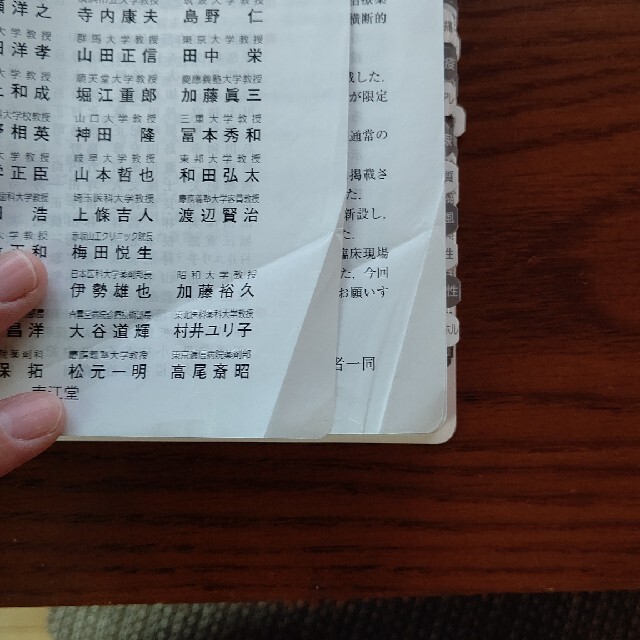 洋之 寺内康夫 島野 仁
群馬大学教授 東京大学教授
洋孝 山田正信 田中 栄
順天堂大学教授 慶應義塾大学教授
和成 堀江重郎 加藤眞三
山口大学教授 三重大学教授
相英 神田 隆 冨本秀和
岐阜大学教授 東邦大学教授
正臣 山本哲也 和田弘太
埼玉医科大学教授 慶應義塾大学客員教授
浩 上條吉人 渡辺賢治
赤坂山王クリニック院長
正和 梅田悦生
日本医科大学薬剤部長 昭和大学教授
伊勢雄也 加藤裕久
東北医科薬科大学教授
昌洋 大谷道輝 村井ユリ子
慶應義塾大学教授
保 拓 松元一明 高尾斎昭
南江堂
横断的
した.
が限定
通常の
掲載さ
た.
新設し,
た.
臨床現場
た. 今回
お願いす
者一同